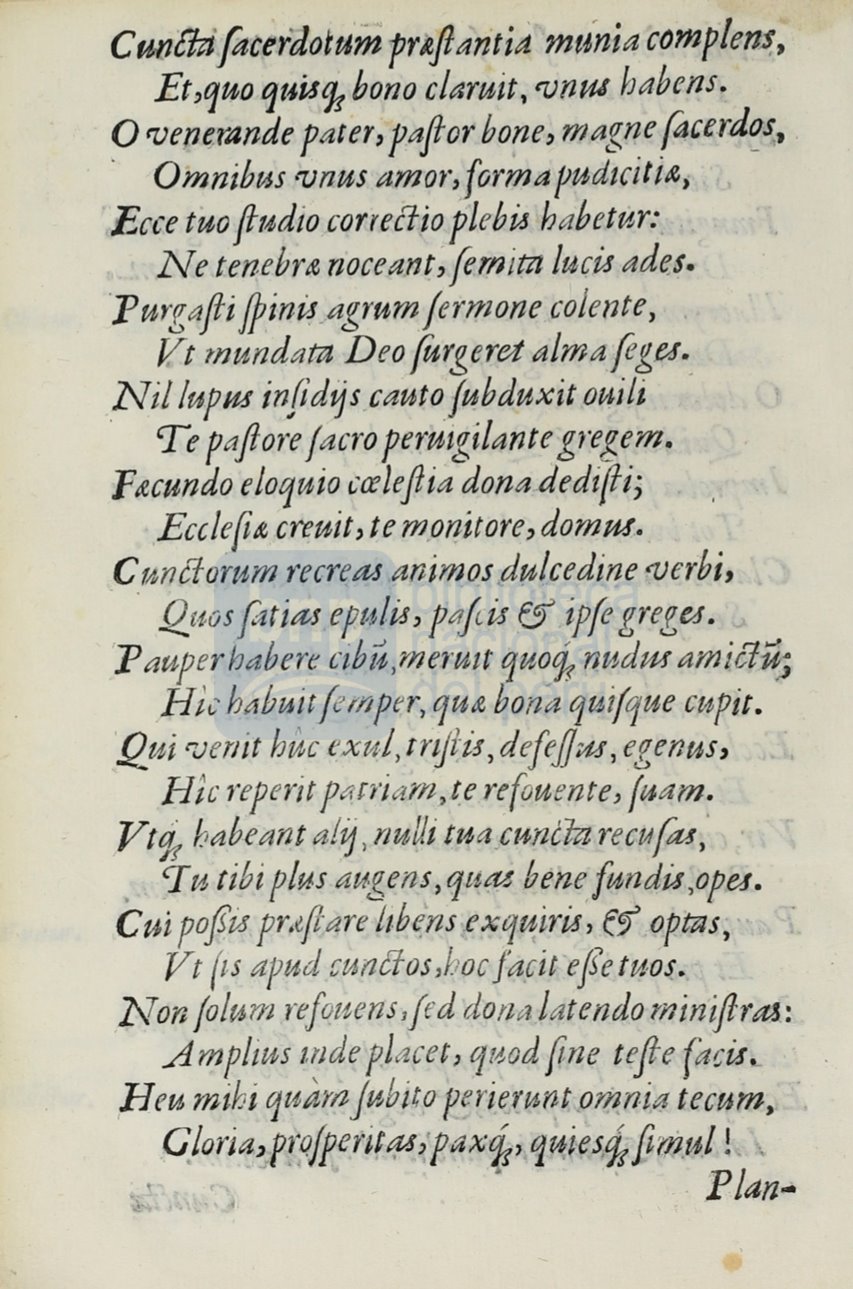 Cuncta ſacerdotum præſtantia munia complens,
Et, quo quisq́; bono claruit, vnus habens.
O venerande pater, paſtor bone, magne ſacerdos,
Omnibus vnus amor, forma pudicitiæ,
Ecce tuo ſtudio correctio plebis habetur:
Ne tenebræ noceant, ſemita lucis ades.
Purgaſti ſpinis agrum ſermone colente,
Vt mundata Deo ſurgeret alma ſeges.
Nil lupus inſidijs cauto ſubduxit ouili
Te paſtore ſacro peruigilante gregem.
Fæcundo eloquio cœleſtia dona dediſti;
Eccleſiæ creuit, te monitore, domus.
Cunctorum recreas animos dulcedine verbi,
Quos ſatias epulis, paſcis & ipſe greges.
Pauper habere cibū, meruit quoq́; nudus amictū;
Hîc habuit ſemper, quæ bona quiſque cupit.
Qui venit hûc exul, triſtis, defeſſus, egenus,
Hîc reperit patriam, te refouente, ſuam.
Vtq́; habeant alij, nulli tua cuncta recuſas,
Tu tibi plus augens, quas bene fundis, opes.
Cui poßis præſtare libens exquiris, & optas,
Vt ſis apud cunctos, hoc facit eße tuos.
Non ſolum refouens, ſed dona latendo miniſtras:
Amplius inde placet, quod ſine teſte facis.
Heu mihi quàm ſubito perierunt omnia tecum,
Gloria, proſperitas, paxq́;, quiesq́; ſimul!
Plan-